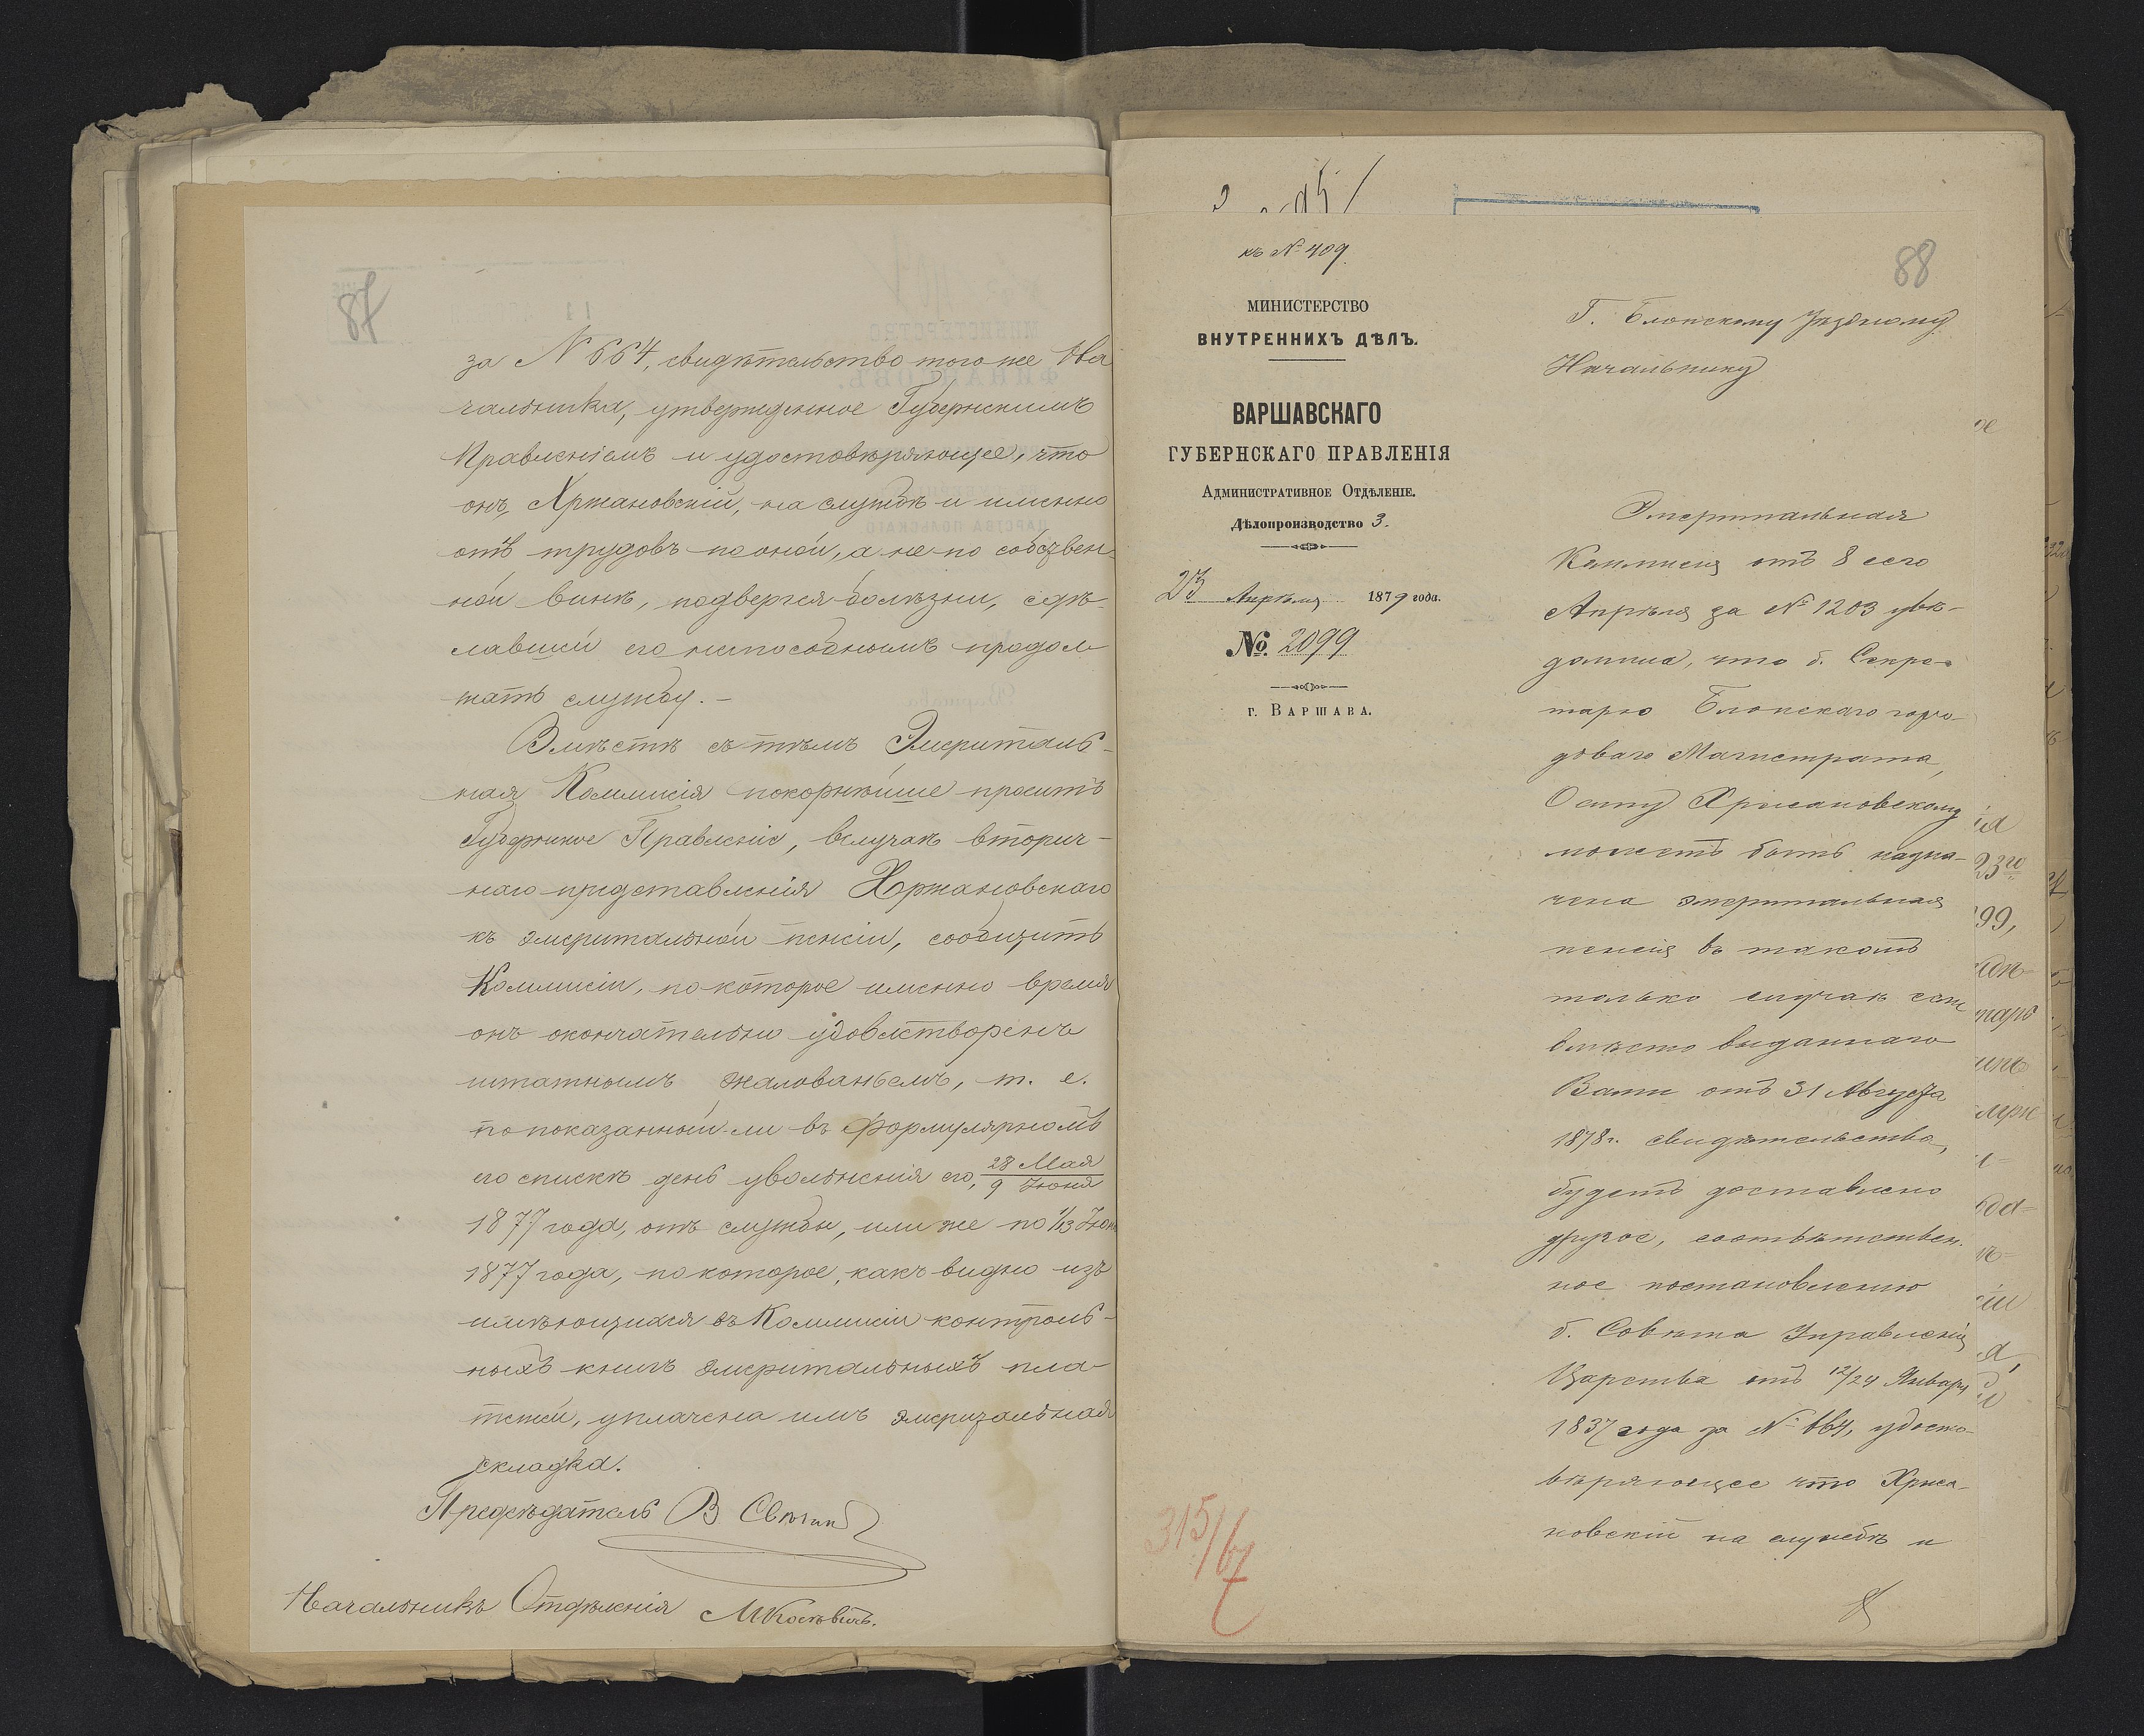 87
за № 664, свидѣтельство того же На
чальника, утвержденное Губернскимъ
Правленіемъ и удостовѣряющее, что
онъ, Хржановскій, на службѣ и именно
отъ трудовъ по оной, а не по собствен-
ной винѣ, подвергся болѣзни, сдѣ-
лавшей его неспособнымъ продол
жать службу. –
Вмѣстѣ съ тѣмъ Эмериталь-
ная Коммисія покорнѣйше проситъ
Губернское Правленіе, вслучаѣ вторич-
наго представленія Хржановскаго
къ эмеритальной пенсіи, сообщить
Коммисіи, по которое именно время
онъ окончательно удовлетворенъ
штатнымъ жалованьемъ, т. е.
по показанный-ли въ формулярномъ
его спискѣ день увольненія его, 28 Мая / 9 Іюня
1877 года, отъ службы, или же по 1/13 Іюня
1877 года, по которое, какъ видно изъ
имѣющихся въ Коммисіи контроль-
ныхъ книгъ эмеритальныхъ пла-
тежей, уплачена имъ эмеритальная
складка.
Предсѣдатель В.
Начальникъ Отдѣленія
къ № 409.
МИНИСТЕРСТВО
ВНУТРЕННИХЪ ДѢЛЪ.
ВАРШАВСКАГО
ГУБЕРНСКАГО ПРАВЛЕНІЯ
Административное Отдѣленіе.
Дѣлопроизводство 3.
23 Апрѣля 1879 года.
№ 2099
г. ВАРШАВА.
315/67
88
Г. Блонскому Уѣздному
Начальнику
Эмеритальная
Коммисія отъ 8 сего
Апрѣля за № 1203 увѣ-
домила, что б. Секре-
тарю Блонскаго горо-
доваго Магистрата,
Осипу Хржановскому
можетъ быть назна-
чена эмеритальная
пенсія въ такомъ
только случаѣ если
вмѣсто выданнаго
Вами отъ 31 Августа
1878 г. свидѣтельства,
будетъ доставлено
другое, соотвѣтствен-
ное постановленію
б. Совѣта Управленія
Царства отъ 12/24 Января
1837 года за № 664, удосто-
вѣряющее что Хржа-
новскій на службѣ и